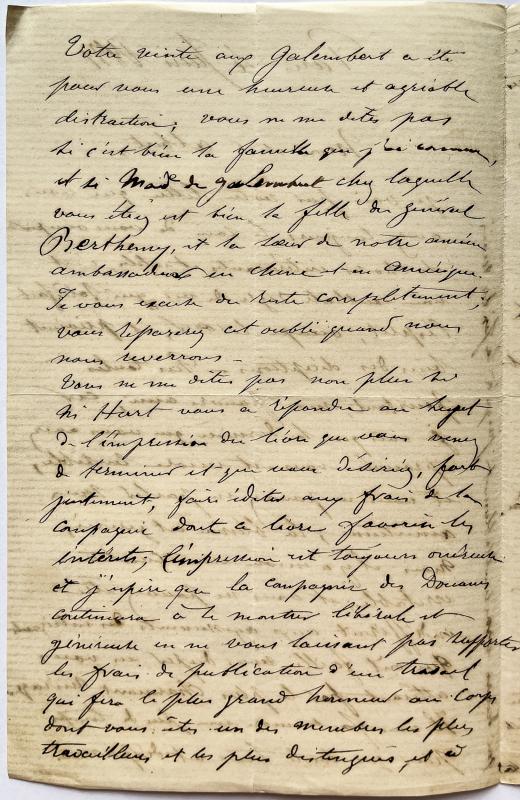 Votre visite aux Galembert a été
pour vous une heureuse et agréable
distraction; vous ne me dites pas
si c'est bien la famille que j'ai connue,
et si Mad. de Galembert chez laquelle
vous étiez est bien la fille du général
Berthemy, et la sœur de notre ancien
ambassadeur en Chine et en Amérique.
Je vous excuse du reste complètement;
vous réparerez cet oubli quand nous
nous reverrons –
Vous ne me dites pas non plus si
Mr Hart vous a répondu au sujet
de l'impression du livre que vous venez
de terminer et que vous désiriez, fort
justement, faire éditer aux frais de la
compagnie dont ce livre favorise les
intérêts; l'impression est toujours onéreuse
et j'espère que la compagnie des Douanes
continuera à se montrer libérale et
généreuse en ne vous laissant pas supporter
les frais de publication d'un travail
qui fera le plus grand honneur au corps
dont vous êtes un des membres les plus
travailleurs et les plus distingués, et